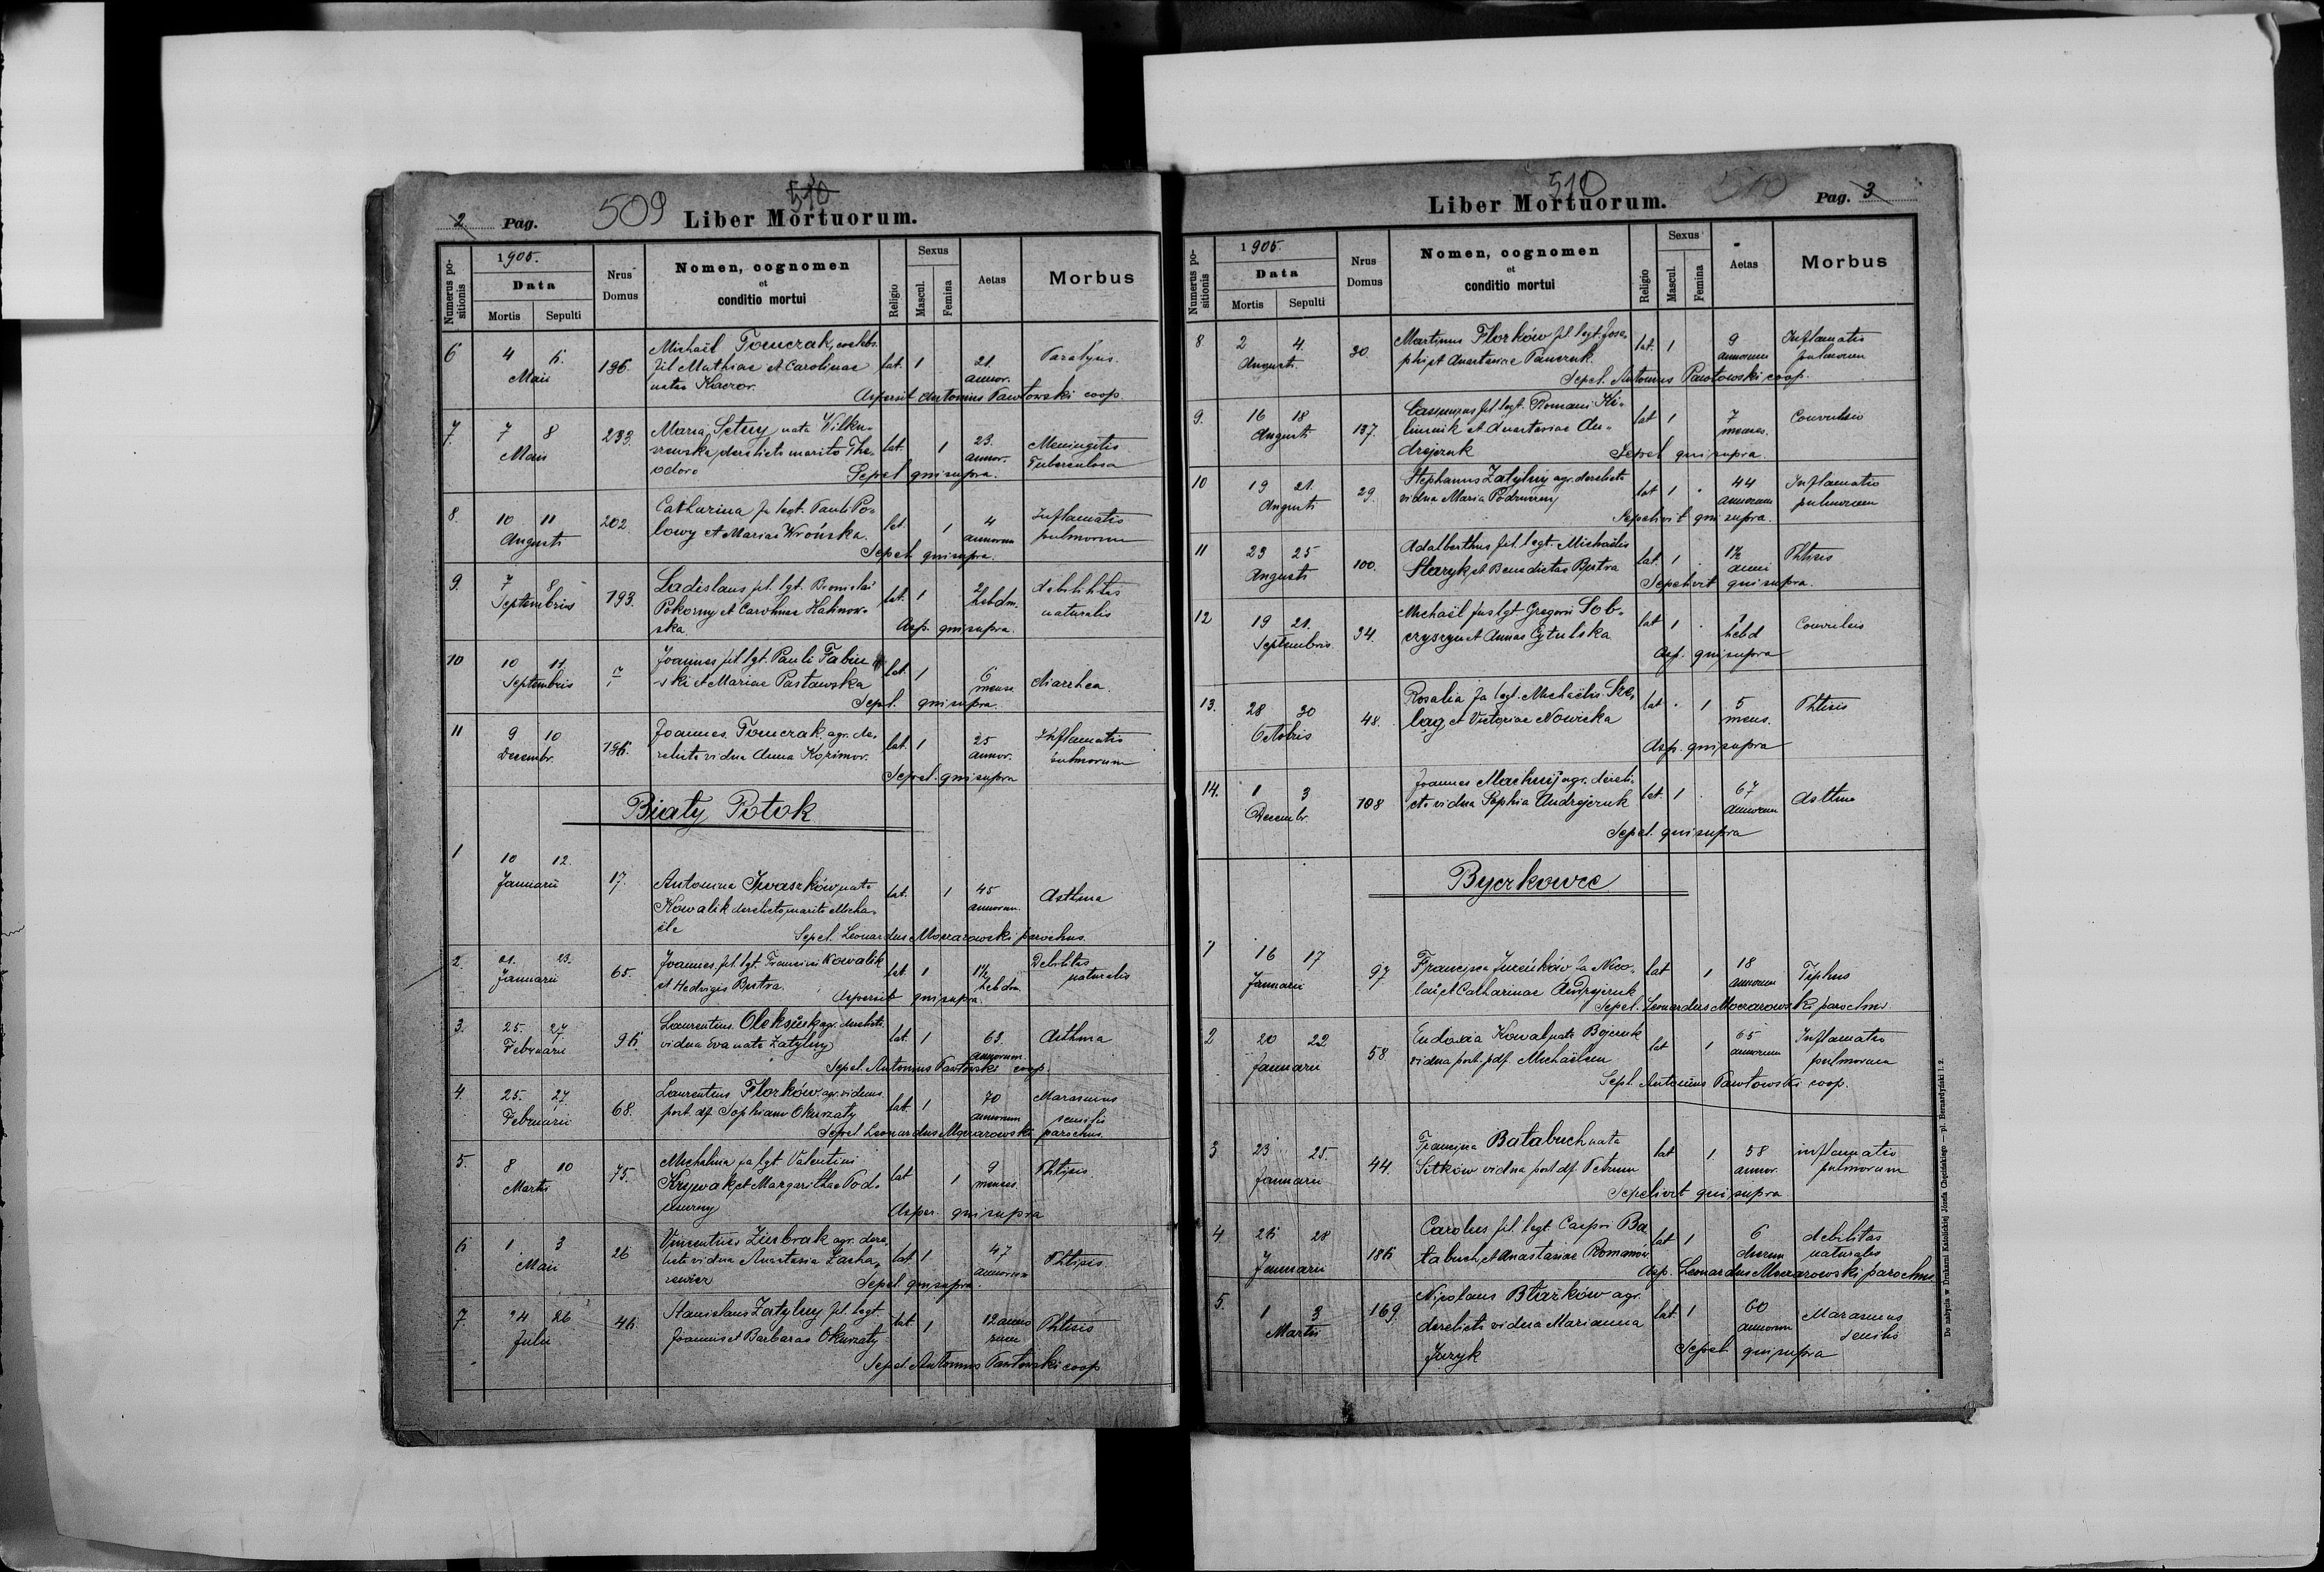 2 Pag. 509 510 Liber Mortuorum.
Numerus positionis 1905. Data Mortis Sepulti Nrus Domus Nomen, cognomen et conditio mortui Religio Sexus Mascul. Femina Aetas Morbus
6 4 6. 196. Michaël Tomczak, coelebs. lat. 1 21. Paralysis.
Maii fil Mathiae et Carolinae annor.
natae Kaczor. Aspersit Antonius Pawłowski coop.
7. 7 8 233. Maria Setny nata Wilku- lat. 1 23. Meningitis
Maii szewska derelicto marito The- annor. Tuberculosa
odoro Sepel qui supra.
8. 10 11 202 Catharina fa legt. Pauli Po- lat. 1 4 Inflamatio
Augusti lowy et Mariae Wrońska. annorum pulmorum
Sepel. qui supra.
9. 7 8 193. Ladislaus fil. lgt. Bronislai lat. 1 2 debilitas
Septembris Pokorny et Carolinae Halinow- hebdm. naturalis
ska Asp. qui supra.
10 10 11 7 Joannes fil lgt. Pauli Fabin lat. 1 6 diarrhea.
Septembris ski et Mariae Pastawska mense
Sepel. qui supra.
11 9 10 196. Joannes Tomczak agr. de- lat. 1 25 Inflamatio
Decembr. relicta vidua Anna Kozimor. annor. pulmorum
Sepel. qui supra
Biały Potok
1 10 12. 17. Antonina Iwaszków nata lat. 1 45 Asthma
Januarii Kowalik derelicto marito Micha- annorum.
ële Sepel. Leonardus Moczarowski parochus.
2. 21. 23. 65. Joannes fil. lgt. Francisci Kowalik lat. 1 1½ Debilitas
Januarii et Hedvigis Bystra. hebdm. naturalis
Aspersit qui supra.
3. 25. 27. 96. Laurentius Oleksiuk agr. derelicta lat. 1 63. Asthma
Februarii vidua Eva nata Zatylny annorum.
Sepel. Antonius Pawłowski coop.
4. 25. 27. 68. Laurentius Florków agr. viduus lat. 1 70 Marasmus
Februarii post. df. Sophiam Okurzaty annorum senilis
Sepel. Leonardus Moczarowski parochus.
5. 8 10 75. Michalina fa lgt. Valentini lat 1 9 Phtisis
Martii Krzywak et Margarithae Pod- menses.
Asper. qui supra
6 1 3 26 Vincentius Zierbrak agr. dere- lat 1 47 Phtisis.
Maii licta vidua Anastasia Zacha- annorum
rewicz Sepel. qui supra.
7. 24 26 46. Stanislaus Zatylny fil. legt lat. 1 12 anno Phtisis
Julii Joannis et Barbarae Okurzaty rum
Sepel. Antonius Pawłowski coop
510 Liber Mortuorum. 510 Pag. 3
Numerus positionis 1905. Data Mortis Sepulti Nrus Domus Nomen, cognomen et conditio mortui Religio Sexus Mascul. Femina Aetas Morbus
8. 2 4. 30. Martinus Florków fil. legt. Jose- lat. 1 9 Inflamatio
Augusti. phi et Anastasiae Panczuk. annorum pulmorum
Sepel. Antonius Pawłowski coop.
9. 16 18 137. Casimirus fil legt. Romani Kli- lat 1 7 Convulsio
Augusti et Anastasiae An- menses.
drejczuk Sepel qui supra.
10 19 21. 29. Stephanus Zatylny agr. derelicta lat 1 44 Inflamatio
Augusti vidua Maria annorum pulmorum
Sepelivit qui supra.
11 23 25 100. Adalberthus fil. legt. Michaëlis lat. 1 1½ Phtisis
Augusti Staryk et Benedictae Bystra anni
Sepelivit qui supra.
12 19 21. 34. Michaël fus lgt Gregorii Sob- lat 1 1 Convulsio
Septembris. czyszyn et Annae Cytulska hebd
Asp. qui supra
13. 28 30 48. Rosalia fa legt. Michaëlis Sze- lat 1 5 Phtisis
Octobris ląg et Victoriae Nowicka mens.
Asp. qui supra
14. 1 3 108 Joannes Machnij agr. dereli- lat. 1 67 Asthma
Decembr. cta vidua Sophia Andrejczuk annorum
Sepel. qui supra
Byczkowce
1 16 17 97 Francisca Jureńków fa Nico- lat 1 18 Tiphus
Januarii lai et Catharinae Andrejczuk annorum
Sepel. Leonardus Moczarowski parochus
2 20 22 58 Eudoxia Kowal nata Bojczuk lat 1 65 Inflamatio
Januarii vidua post. pdf. Michaëlem annorum pulmorum
Sepl. Antonius Pawłowski coop.
3 23 25. 44. Francisca Bałabuch nata lat 1 58 inflamatio
Januarii Sitków vidua post df. Petrum annor. pulmorum
Sepelivit qui supra
4 26 28 186 Carolus fil. legt. Caspri Ba lat 1 6 debilitas
Januarii łabuch et Anastasiae Romanów. dierum naturales
Asp. Leonardus Moczarowski parochus
5. 1 3 169 Nicolaus Błażków agr. lat. 1 60 Marasmus
Martii derelicta vidua Marianna annorum senilis
Jazyk Sepel qui supra
Do nabycia w Drukarni Katolickiej Józefa Chęcińskiego — pl. Bernardyński l. 2.